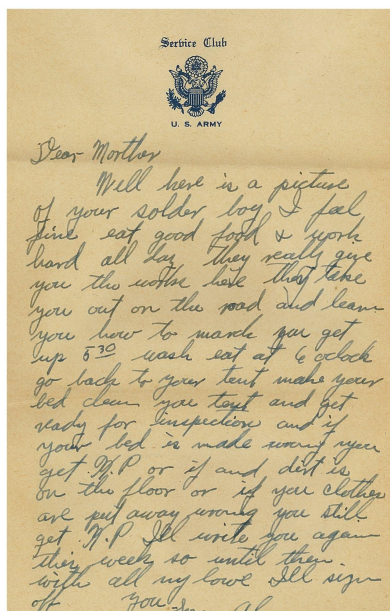 Service Club
U. S. ARMY
Dear Morther
Well here is a picture
of your solder boy I feel
fine eat good food & work
hard all day they really give
you the works here they take
you out on the road and learn
you how to march you get
up 5 30 wash eat at 6 oclock
go back to your tent make your
bed clean you tent and get
ready for inspection and if
your bed is made wrong you
get K.P or if and dirt is
on the floor or if you clothes
are put away wrong you still
get K.P I'll write you again
this week so until then
with all my love I'll sign
off your